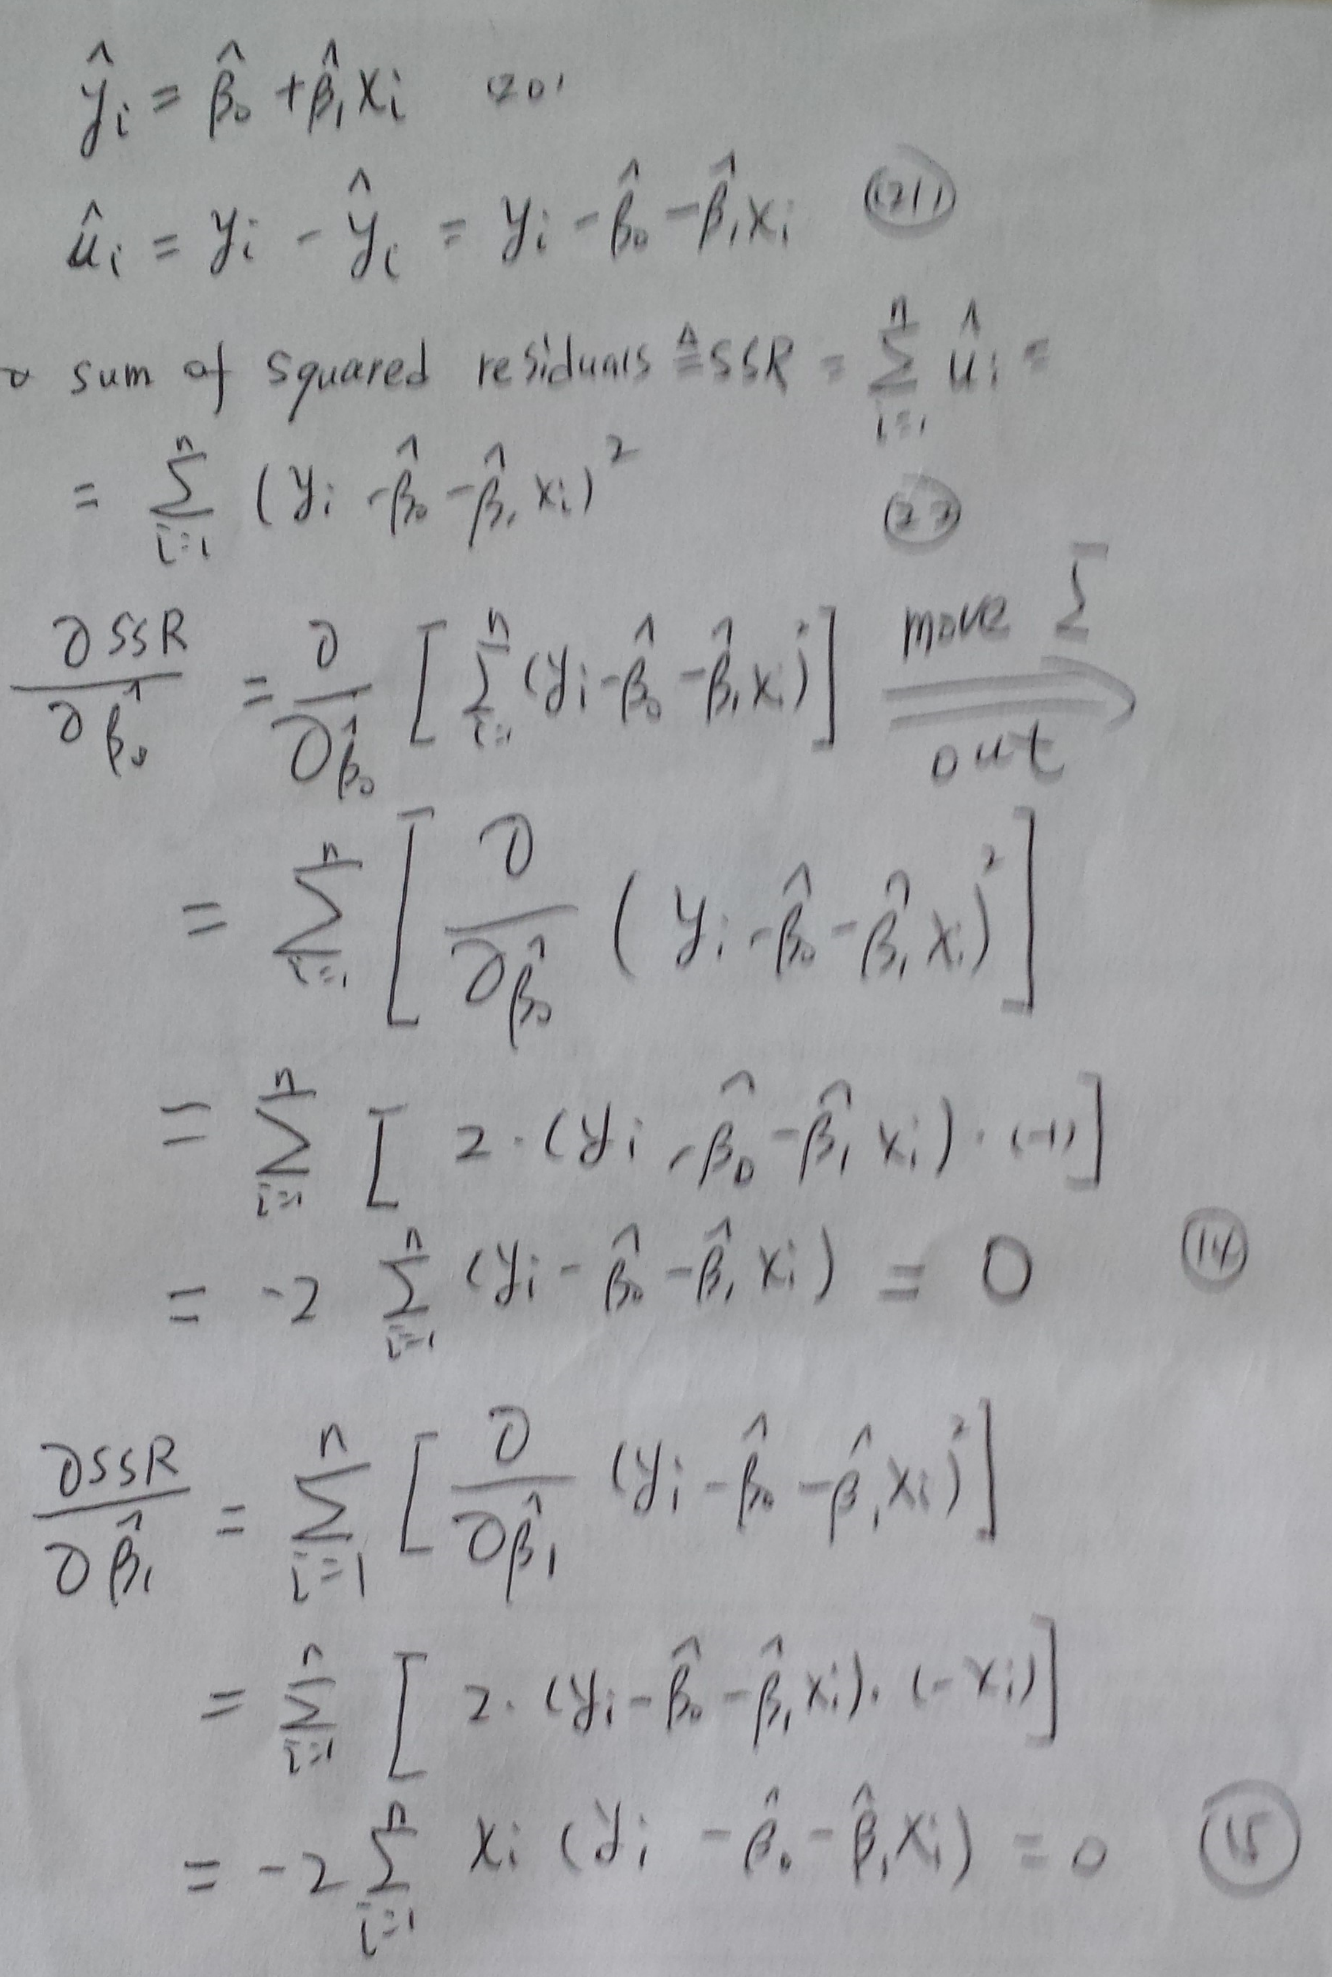 ŷi = β̂0 + β̂1xi (20)
ûi = yi - ŷi = yi - β̂0 - β̂1xi (21)
sum of squared residuals ≜ SSR = Σ_{i=1}^{n} ûi =
= Σ_{i=1}^{n} (yi - β̂0 - β̂1xi)² (22)
∂SSR/∂β̂0 = ∂/∂β̂0 [Σ_{i=1}^{n} (yi - β̂0 - β̂1xi)²] move Σ out ⇒
= Σ_{i=1}^{n} [∂/∂β̂0 (yi - β̂0 - β̂1xi)²]
= Σ_{i=1}^{n} [2·(yi - β̂0 - β̂1xi)·(-1)]
= -2 Σ_{i=1}^{n} (yi - β̂0 - β̂1xi) = 0 (14)
∂SSR/∂β̂1 = Σ_{i=1}^{n} [∂/∂β̂1 (yi - β̂0 - β̂1xi)²]
= Σ_{i=1}^{n} [2·(yi - β̂0 - β̂1xi)·(-xi)]
= -2 Σ_{i=1}^{n} xi (yi - β̂0 - β̂1xi) = 0 (15)